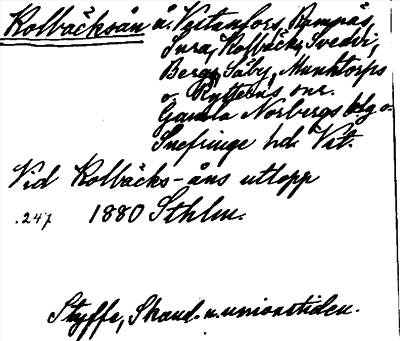 Kolbäcksån å. Västanfors, Ramnäs,
Sura, Kolbäcks, Svedvi,
Berg, Säby, Munktorps
o. Rytterns snr.
Gamla Norbergs bdg o.
Snefringe hd. Vst.
Vid Kolbäcks-åns utlopp
.247. 1880 Sthlm.
Styffe, Skand. u. unionstiden.